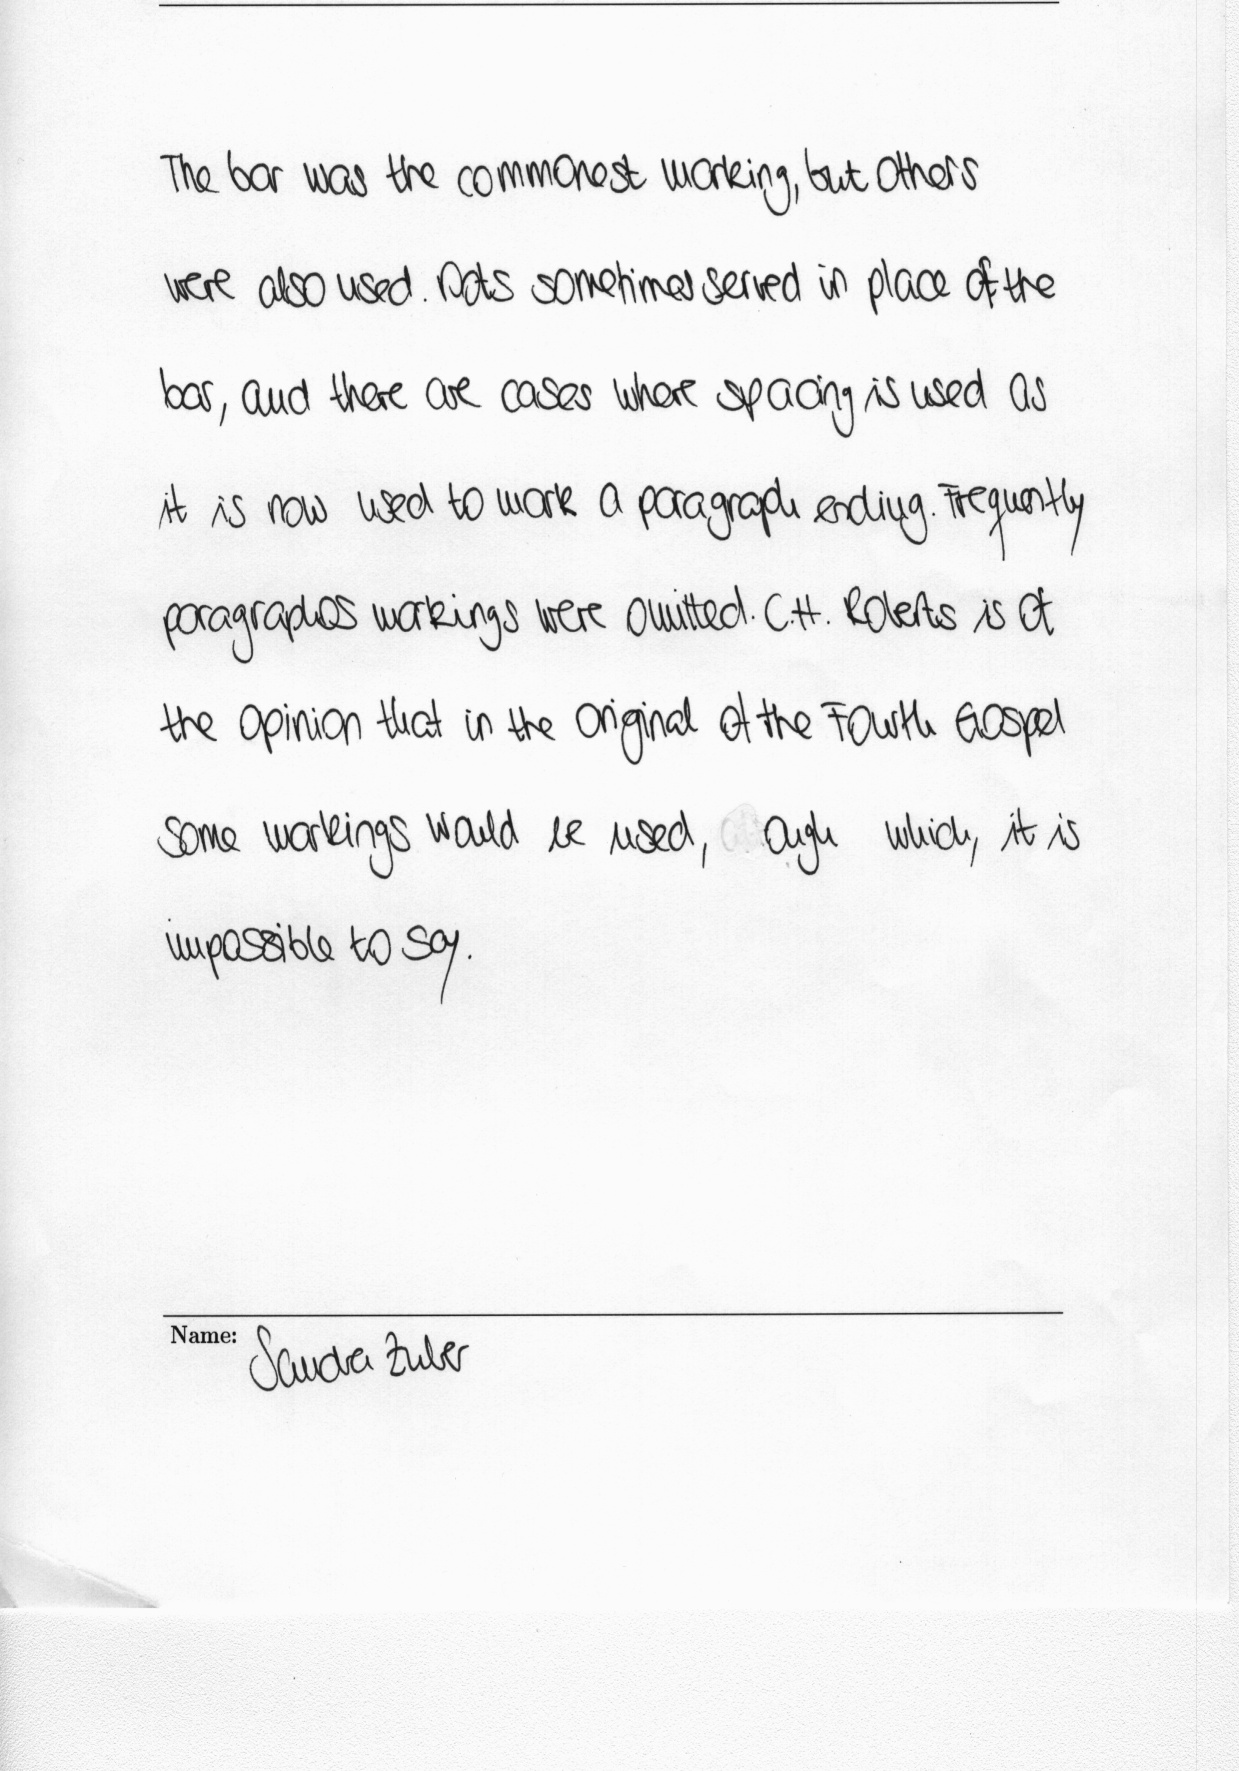 The bar was the commonest marking, but others
were also used. Dots sometimes served in place of the
bar, and there are cases where spacing is used as
it is now used to mark a paragraph ending. Frequently
paragraphos markings were omitted. C.H. Roberts is of
the opinion that in the original of the Fourth Gospel
some markings would be used, ough which, it is
impossible to say.
Name: Sandra Zuber